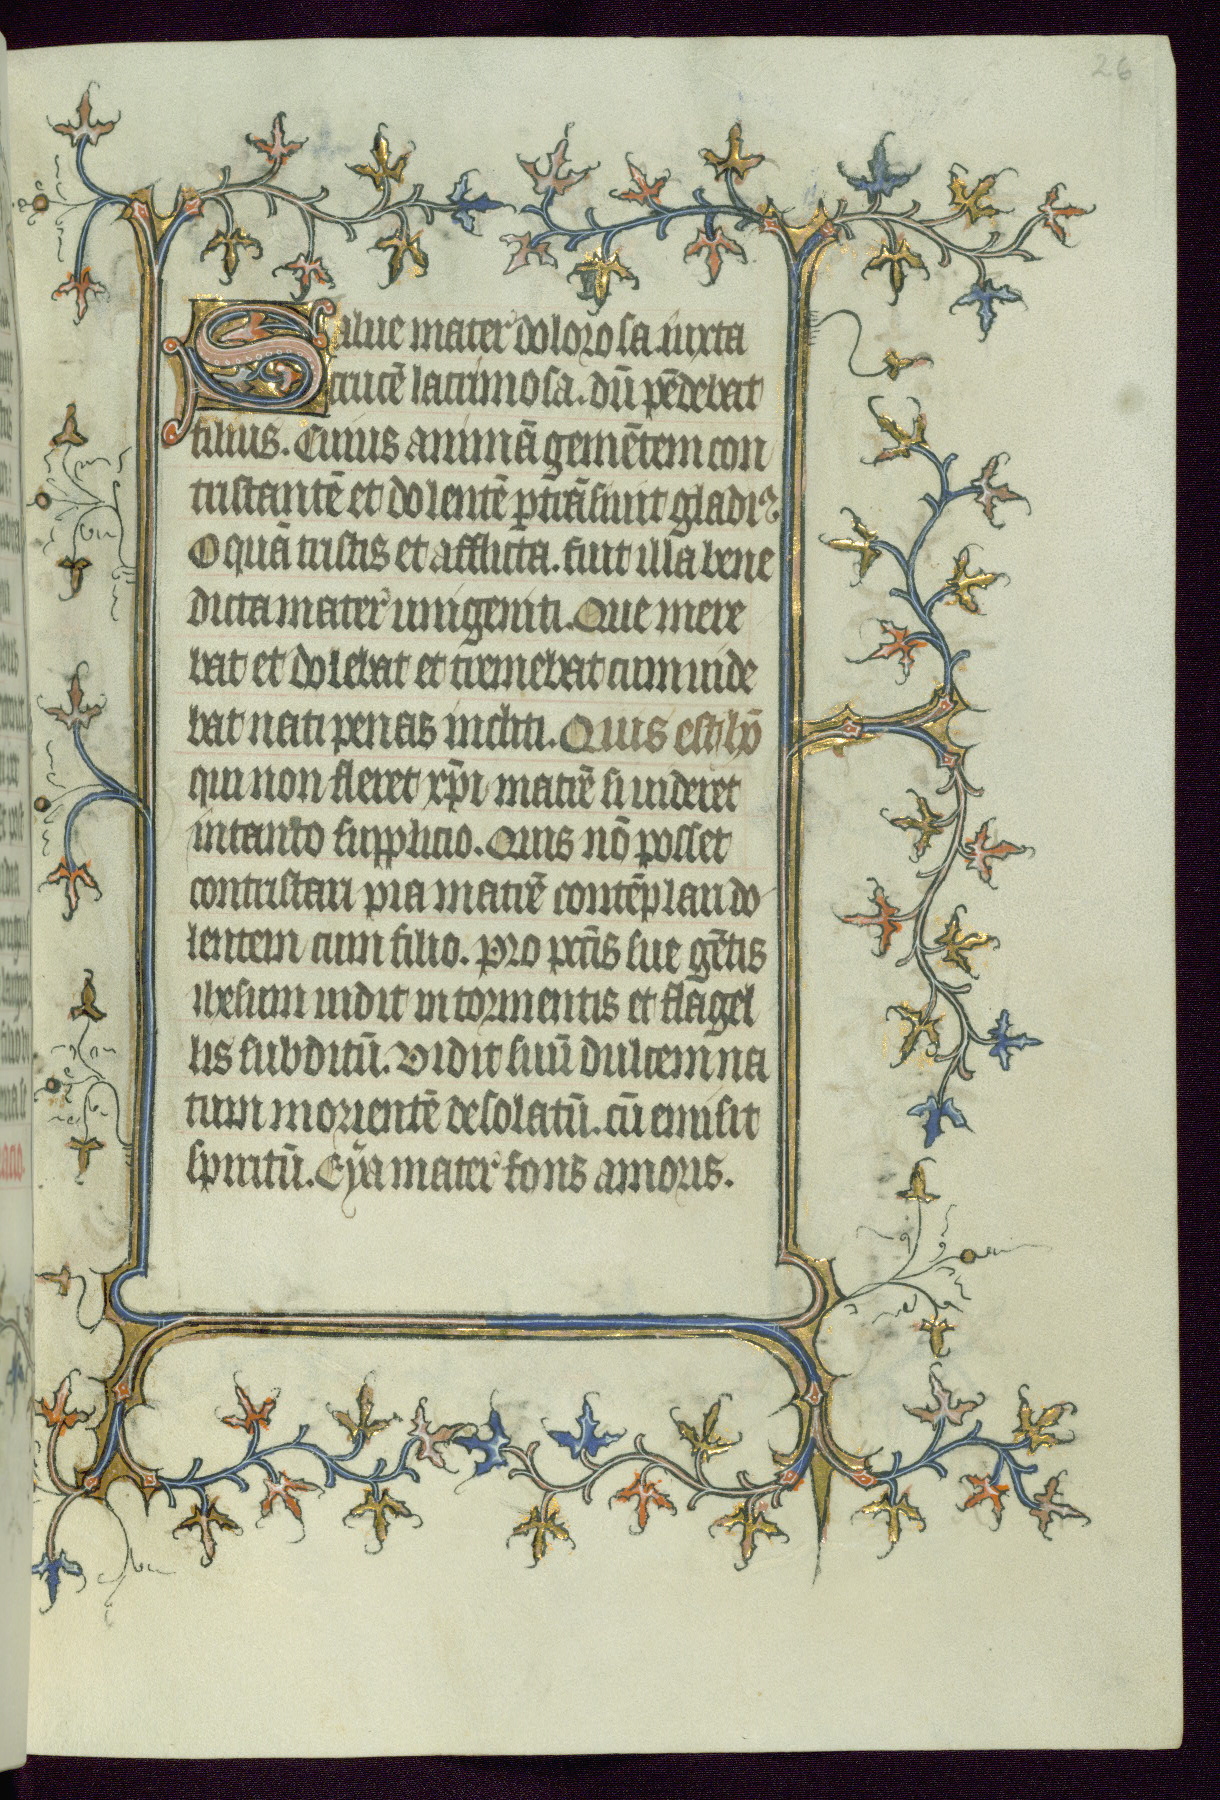 26
Salue mater dolorosa. iuxta
crucē lacrimosa. dū pēdebat
filius. Cuius animā gemētem con
tristantē et dolentē ꝑtrāsiuit gladiꝰ
O quā tristis et afflicta. fuit illa bene
dicta mater unigeniti. Que mere
bat et dolebat et tremebat cum uide
bat nati penas incliti. Quis est hō
qui non fleret xp̄i matrē si uideret
in tanto supplicio. Quis nō posset
contristari pia matrē contēplari do
lentem cum filio. Pro pctīs sue gētis
ihesum uidit in tormentis et flagel
lis subditū. Vidit suū dulcem na
tum morientē desolatū. cū emisit
spiritū. Eya mater fons amoris.